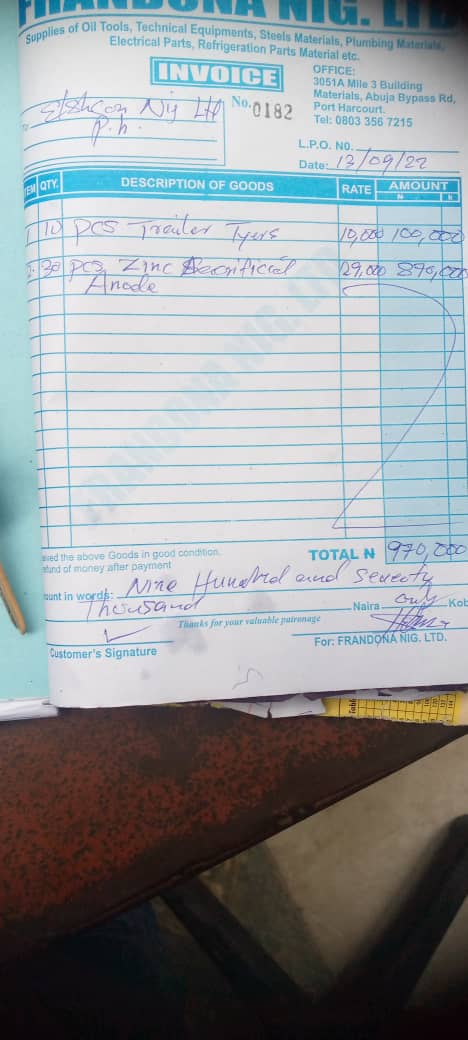 FRANDONA NIG. LTD
Supplies of Oil Tools, Technical Equipments, Steels Materials, Plumbing Materials,
Electrical Parts, Refrigeration Parts Material etc.
INVOICE
OFFICE:
3051A Mile 3 Building
Materials, Abuja Bypass Rd,
Port Harcourt.
Tel: 0803 356 7215
No. 0182
Nig Ltd
P.h.
L.P.O. NO.
Date: 13/09/22
QTY. DESCRIPTION OF GOODS RATE AMOUNT
N K
10 pcs Trailer Tyers 10,000 100,000
2. 30 pcs Zinc Sacrificial 29,000 870,000
Anode
FRANDONA NIG. LTD
ived the above Goods in good condition.
efund of money after payment
TOTAL N 970,000
ount in words: Nine Hundred and Seventy
Thousand Naira only Kob
Thanks for your valuable patronage
Customer's Signature
For: FRANDONA NIG. LTD.